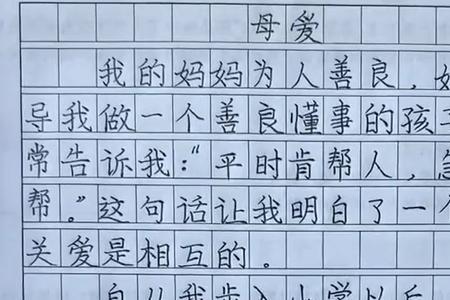 母爱
我的妈妈为人善良,
导我做一个善良懂事的孩
常告诉我:“平时肯帮人,
帮。”这句话让我明白了一个
关爱是相互的。
自从我步入小学以后